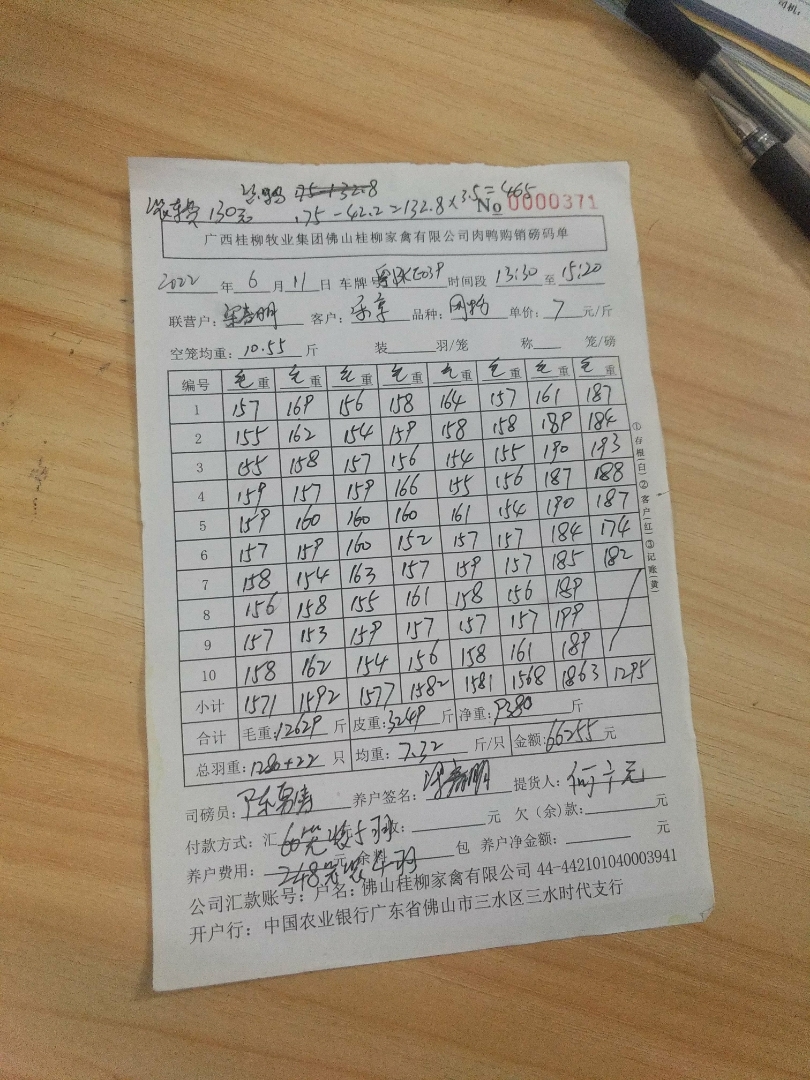 司机:
130元 .75-42.2=132.8×3.5=465
No 0000371
广西桂柳牧业集团佛山桂柳家禽有限公司肉鸭购销磅码单
2022 年 6 月 11 日 车牌 时间段 13:30 至 15:20
联营户: 客户: 品种: 单价: 7 元/斤
空笼均重: 10.55 斤 装 羽/笼 称 笼/磅
编号 毛重 毛重 毛重 毛重 毛重 毛重 毛重 毛重
1 157 169 156 158 164 157 161 187
2 155 162 154 159 158 158 189 184
3 155 158 157 156 154 155 190 193
4 159 157 159 166 155 156 187 188
5 159 160 160 160 161 154 190 187
6 157 159 160 152 157 157 184 174
7 158 154 163 157 159 157 185 182
8 156 158 155 161 158 156 189
9 157 153 159 157 157 157 199
10 158 162 154 156 158 161 189
小计 1571 1592 1577 1582 1581 1568 1863 1295
合计 毛重: 12629 斤 皮重: 3249 斤 净重: 9380 斤
总羽重: 1280+22 只 均重: 7.32 斤/只 金额: 66255 元
司磅员: 养户签名: 提货人: 何六元
付款方式: 汇 元 欠(余)款: 元
养户费用: 元 余料 包 养户净金额: 元
公司汇款账号: 户名: 佛山桂柳家禽有限公司 44-442101040003941
开户行: 中国农业银行广东省佛山市三水区三水时代支行
①存根(白)②客户(红)③记账(黄)